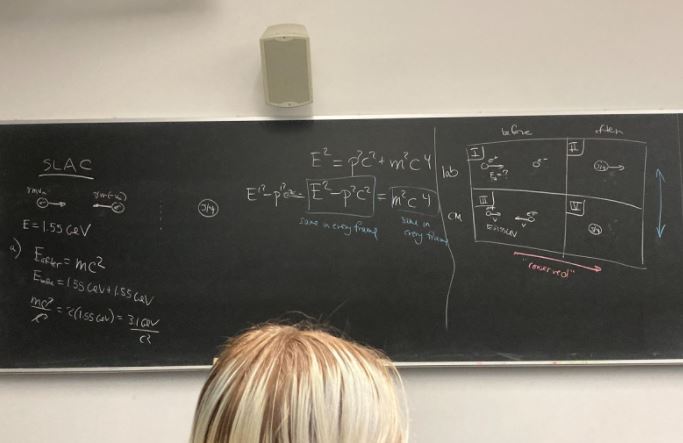 SLAC
E = 1.55 GeV
a) E after = mc²
E before = 1.55 GeV + 1.55 GeV
mc²/c² = 2(1.55 GeV) = 3.1 GeV/c²
J/ψ
E² = p²c² + m²c4
E'² - p'²c² = E² - p²c² = m²c4
same in every frame
same in every frame
before after
lab
I
e+
e-
E = ?
II
J/ψ
CM
III
E=1.55 GeV
v v
IV
J/ψ
"conserved"